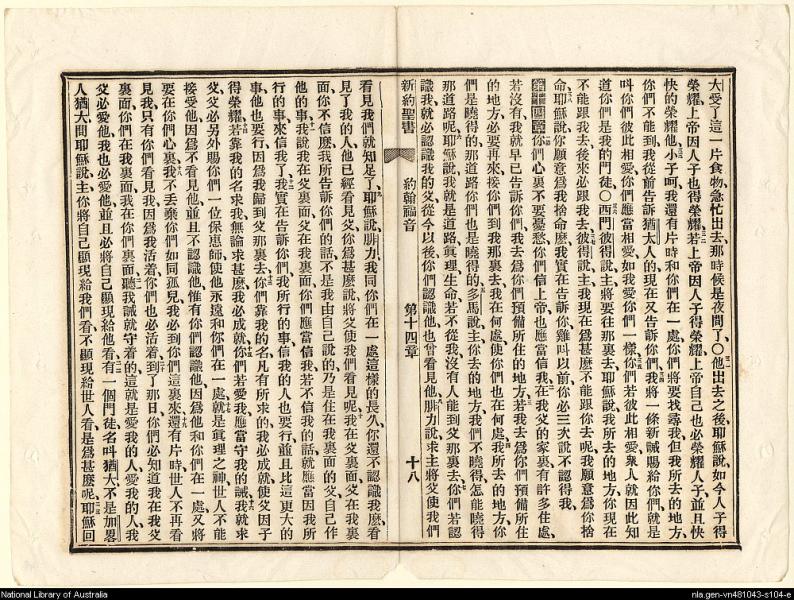 大受了這一片食物急忙出去、那時候是夜間了〇他出去之後耶穌說、如今人子得
榮耀、上帝因人子也得榮耀、若上帝因人子得榮耀、上帝自己也必榮耀人子、並且快
快的榮耀他、小子呵、我還有片時和你們在一處、你們將要找尋我、但我所去的地方、
你們不能到、我從前告訴猶太人的、現在又告訴你們、我將一條新誡賜給你們、就是
叫你們彼此相愛、你們應當相愛、如我愛你們一樣、你們若彼此相愛、衆人就因此知
道你們是我的門徒〇西門彼得說、主將要往那裏去、耶穌說、我所去的地方、你現在
不能跟我去、後來必跟我去、彼得說、主、我現在爲甚麼不能跟你去呢、我願意爲你捨
命、耶穌說、你願意爲我捨命麼、我實在告訴你、雞叫以前你必三次說不認得我、
第十四章 你們心裏不要憂愁、你們信上帝也應當信我、在我父的家裏有許多住處、
若沒有、我就早已告訴你們、我去爲你們預備所住的地方、若我去爲你們預備所住
的地方、必要再來接你們到我那裏去、我在何處使你們也在何處、我所去的地方、你
們是曉得的、那道路你們也是曉得的、多馬說、主你去的地方、我們不曉得、怎能曉得
那道路呢、耶穌說、我就是道路眞理生命、若不從我、沒有人能到父那裏去、你們若認
識我、就必認識我的父、從今以後你們認識他、也曾看見他、腓力說、求主將父使我們
新約聖書 約翰福音 第十四章 十八
看見、我們就知足了、耶穌說、腓力、我同你們在一處這樣的長久、你還不認識我麼、看
見了我的人、他已經看見父、你爲甚麼說將父使我們看見呢、我在父裏面、父在我裏
面、你不信麼、我所告訴你們的話、不是我由自己說的、乃是住在我裏面的父、自己作
他的事、我說我在父裏面、父在我裏面、你們應當信我、若不信我的話、就應當因我所
行的事來信我了、我實在告訴你們、我所行的事、信我的人也要行、並且比這更大的
事、他也要行、因爲我歸到父那裏去、你們靠我的名、凡有所求的、我必成就、使父因子
得榮耀、若靠我的名求我、無論求甚麼我必成就、你們若愛我、應當守我的誡、我就求
父、父必另外賜你們一位保惠師、使他永遠和你們在一處、就是眞理之神、世人不能
接受他、因爲不看見他、並且不認識他、惟有你們認識他、因爲他和你們在一處、又將
要在你們心裏、我不丟棄你們如同孤兒、我必到你們這裏來、還有片時世人不再看
見我、只有你們看見我、因爲我活着、你們也必活着、到了那日、你們必知道我在我父
裏面、你們在我裏面、我在你們裏面、聽我誡就守着的、這就是愛我的人、愛我的人、我
父必愛他、我也必愛他、並且必將自己顯現給他看、有一個門徒名叫猶大、不是加畧
人猶大、問耶穌說、主、你將自己顯現給我們看、不顯現給世人看、是爲甚麼呢、耶穌回
National Library of Australia
nla.gen-vn481043-s104-e